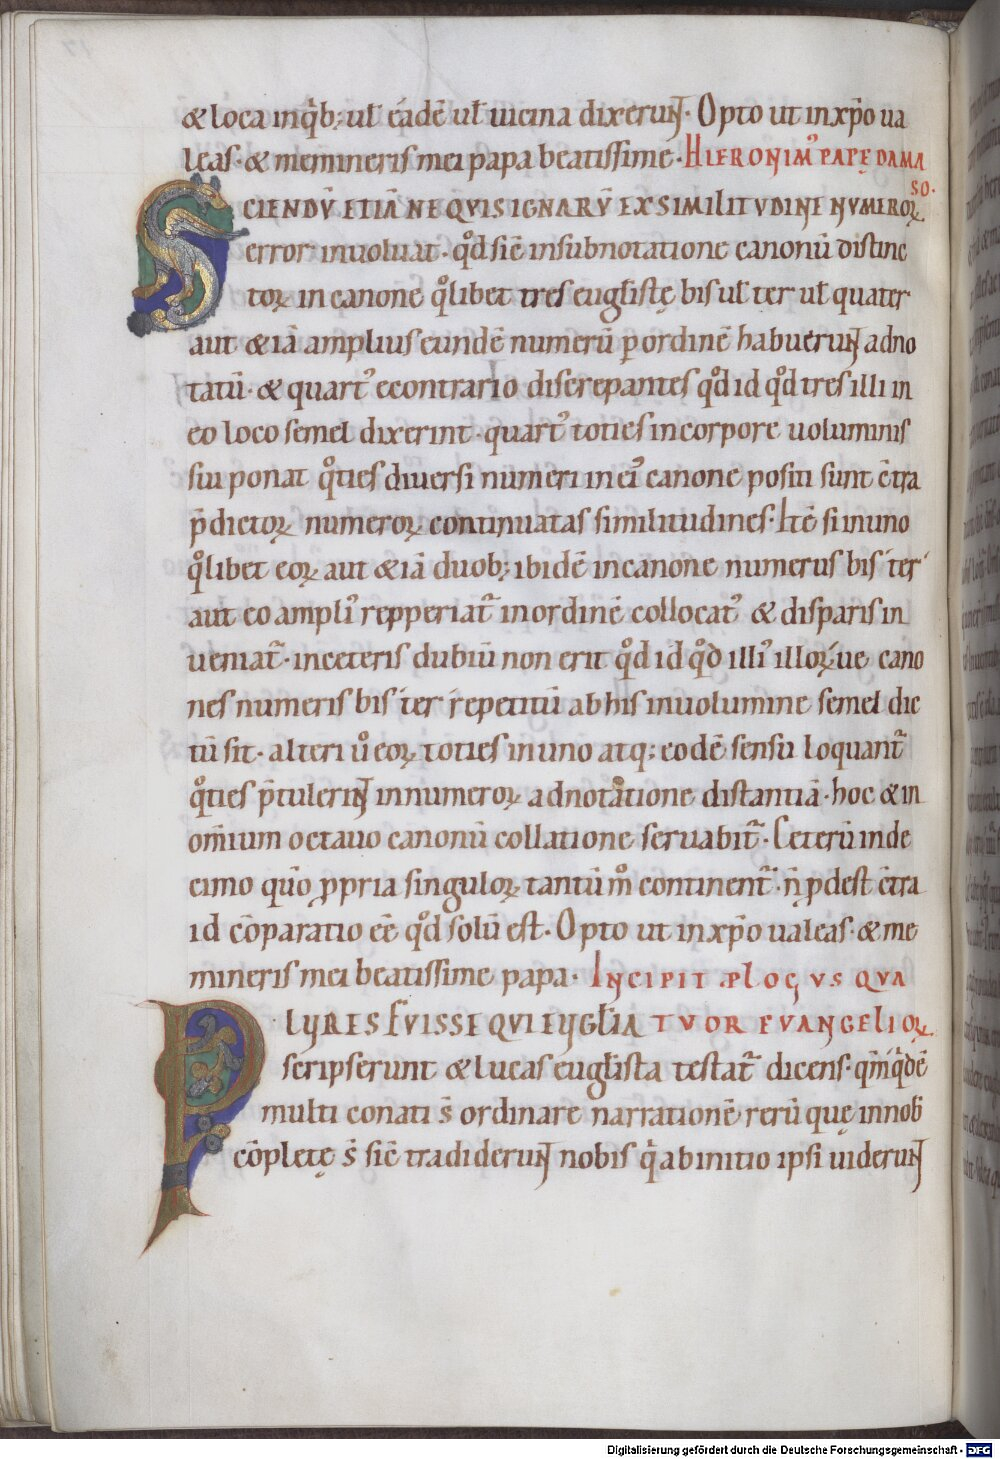 & loca inq̇b; ul̄ eadē ul̄ uicina dixerunt. Opto ut in xp̄o ua
leas. & memineris mei papa beatissime. HIERONIMꝰ PAPĘ DAMA
SO.
SCIENDV̄ ETIĀ NE QVIS IGNARV̄ EX SIMILITVDINE NVMEROꝝ
error inuoluat. qd̊ sic̄ in subnotatione canonū distinc
toꝝ in canone q̊libet tres eugl̄istę bis ul̄ ter ul̄ quater
aut &iā amplius eundē numerū ꝑ ordinē habuerunt adno
tatū. & quartꝰ econtrario discrepantes qd̊ id qd̊ tres illi in
eo loco semel dixerint. quartꝰ toties in corpore uoluminis
sui ponat q̊ties diuersi numeri in eiꝰ canone positi sunt c̄tra
p̄dictoꝝ numeroꝝ continuatas similitudines. Itē si in uno
q̊libet eoꝝ aut &iā duob; ibidē in canone numerus bis ter
aut eo ampliꝰ repperiat᷑ in ordinē collocatꝰ & disparis in
ueniat᷑. in ceteris dubiū non erit qd̊ id qd̊ illiꝰ illoꝝue cano
nes numeris bis ter repetitū ab his in uolumine semel dic
tū sit. alteri ů eoꝝ toties in uno atq; eodē sensu loquant᷑
q̊ties p̄tulerint in numeroꝝ adnotatione distantiā. hoc & in
om̄ium octauo canonū collatione seruabit᷑. Ceterū in de
cimo quō ꝓpria singuloꝝ tantūm̊ continent᷑. n̄ ꝓdest c̄tra
id c̄oparatio eē qd̊ solū est. Opto ut in xp̄o ualeas. & me
mineris mei beatissime papa. INCIPIT PLOGVS QVA
PLVRES FVISSE QVI EVGL̄IA TVOR EVANGELIOꝝ
scripserunt & lucas eugl̄ista testat᷑ dicens. qm̄ q̇dē
multi conati s̄ ordinare narrationē rerū quę in nob̄
c̄opletę s̄ sic̄ tradiderunt nobis q̇ ab initio ipsi uiderunt
Digitalisierung gefördert durch die Deutsche Forschungsgemeinschaft - DFG